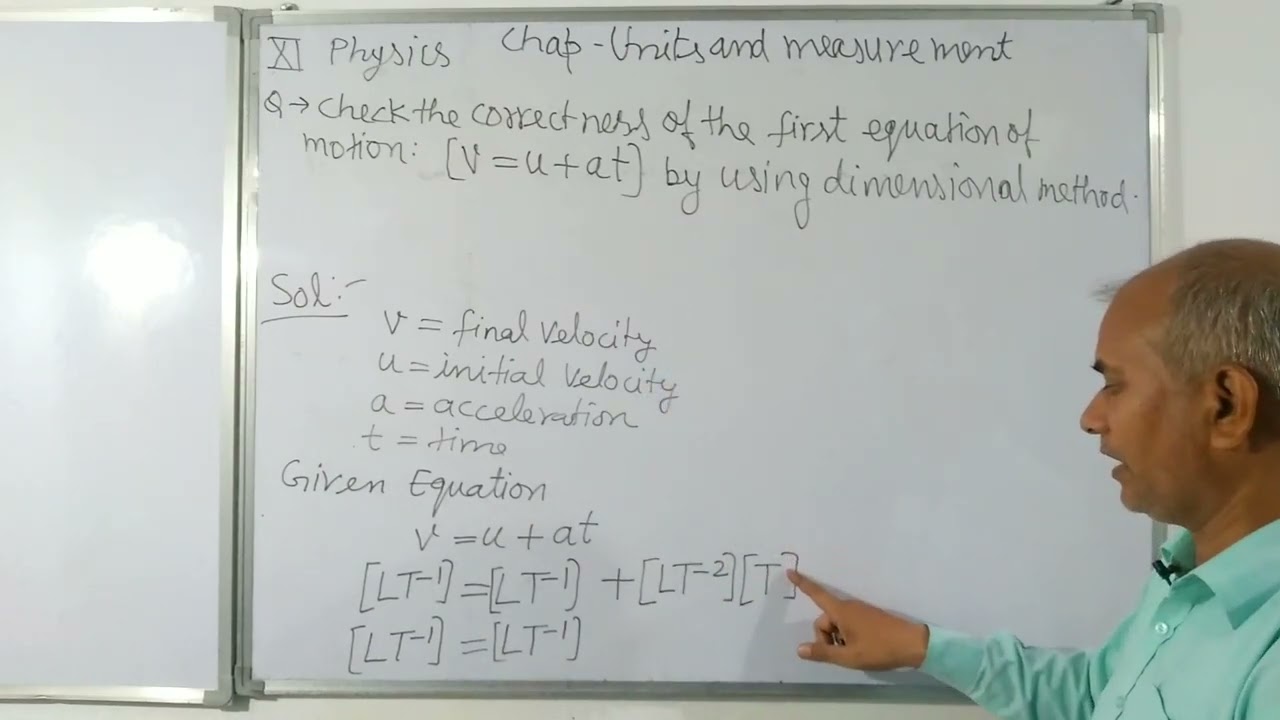 XI Physics Chap-Units and measurement
Q→ Check the correctness of the first equation of
motion: [v=u+at] by using dimensional method.
Sol:-
v = final velocity
u = initial velocity
a = acceleration
t = time
Given Equation
v = u + at
[LT-1] = [LT-1] + [LT-2][T]
[LT-1] = [LT-1]